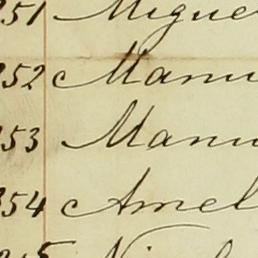 251 Migue
252 Manu
253 Manu
254 Amel